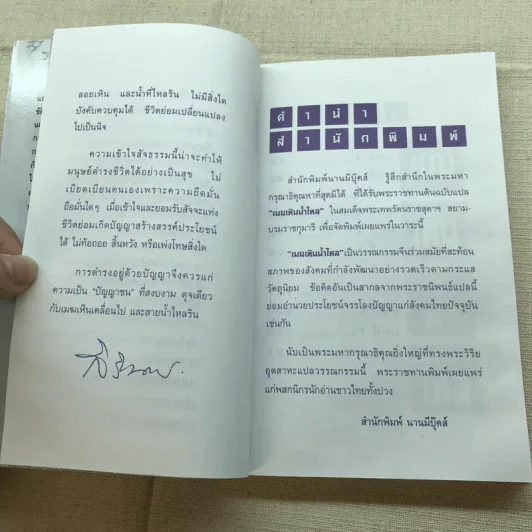 ลอยเหิน และน้ำที่ไหลริน ไม่มีสิ่งใด
บังคับควบคุมได้ ชีวิตย่อมเปลี่ยนแปลง
ไปเป็นนิจ
ความเข้าใจสัจธรรมนี้น่าจะทำให้
มนุษย์ดำรงชีวิตได้อย่างเป็นสุข ไม่
เบียดเบียนตนเองเพราะความยึดมั่น
ถือมั่นใดๆ เมื่อเข้าใจและยอมรับสัจจะแห่ง
ชีวิตย่อมเกิดปัญญาสร้างสรรค์ประโยชน์
ได้ ไม่ท้อถอย สิ้นหวัง หรือเพ่งโทษสิ่งใด
การดำรงอยู่ด้วยปัญญาจึงควรแก่
ความเป็น "ปัญญาชน" ที่สงบงาม ดุจเดียว
กับเมฆเหินเคลื่อนไป และสายน้ำไหลริน
คำนำ
สำนักพิมพ์
สำนักพิมพ์นานมีบุ๊คส์ รู้สึกสำนึกในพระมหา
กรุณาธิคุณหาที่สุดมิได้ ที่ได้รับพระราชทานต้นฉบับแปล
"เมฆเหินน้ำไหล" ในสมเด็จพระเทพรัตนราชสุดาฯ สยาม-
บรมราชกุมารี เพื่อจัดพิมพ์เผยแพร่ในวาระนี้
"เมฆเหินน้ำไหล"เป็นวรรณกรรมจีนร่วมสมัยที่สะท้อน
สภาพของสังคมที่กำลังพัฒนาอย่างรวดเร็วตามกระแส
วัตถุนิยม ข้อคิดอันเป็นสากลจากพระราชนิพนธ์แปลนี้
ย่อมอำนวยประโยชน์จรรโลงปัญญาแก่สังคมไทยปัจจุบัน
เช่นกัน
นับเป็นพระมหากรุณาธิคุณยิ่งใหญ่ที่ทรงพระวิริย
อุตสาหะแปลวรรณกรรมนี้ พระราชทานพิมพ์เผยแพร่
แก่พสกนิกรนักอ่านชาวไทยทั้งปวง
สำนักพิมพ์ นานมีบุ๊คส์